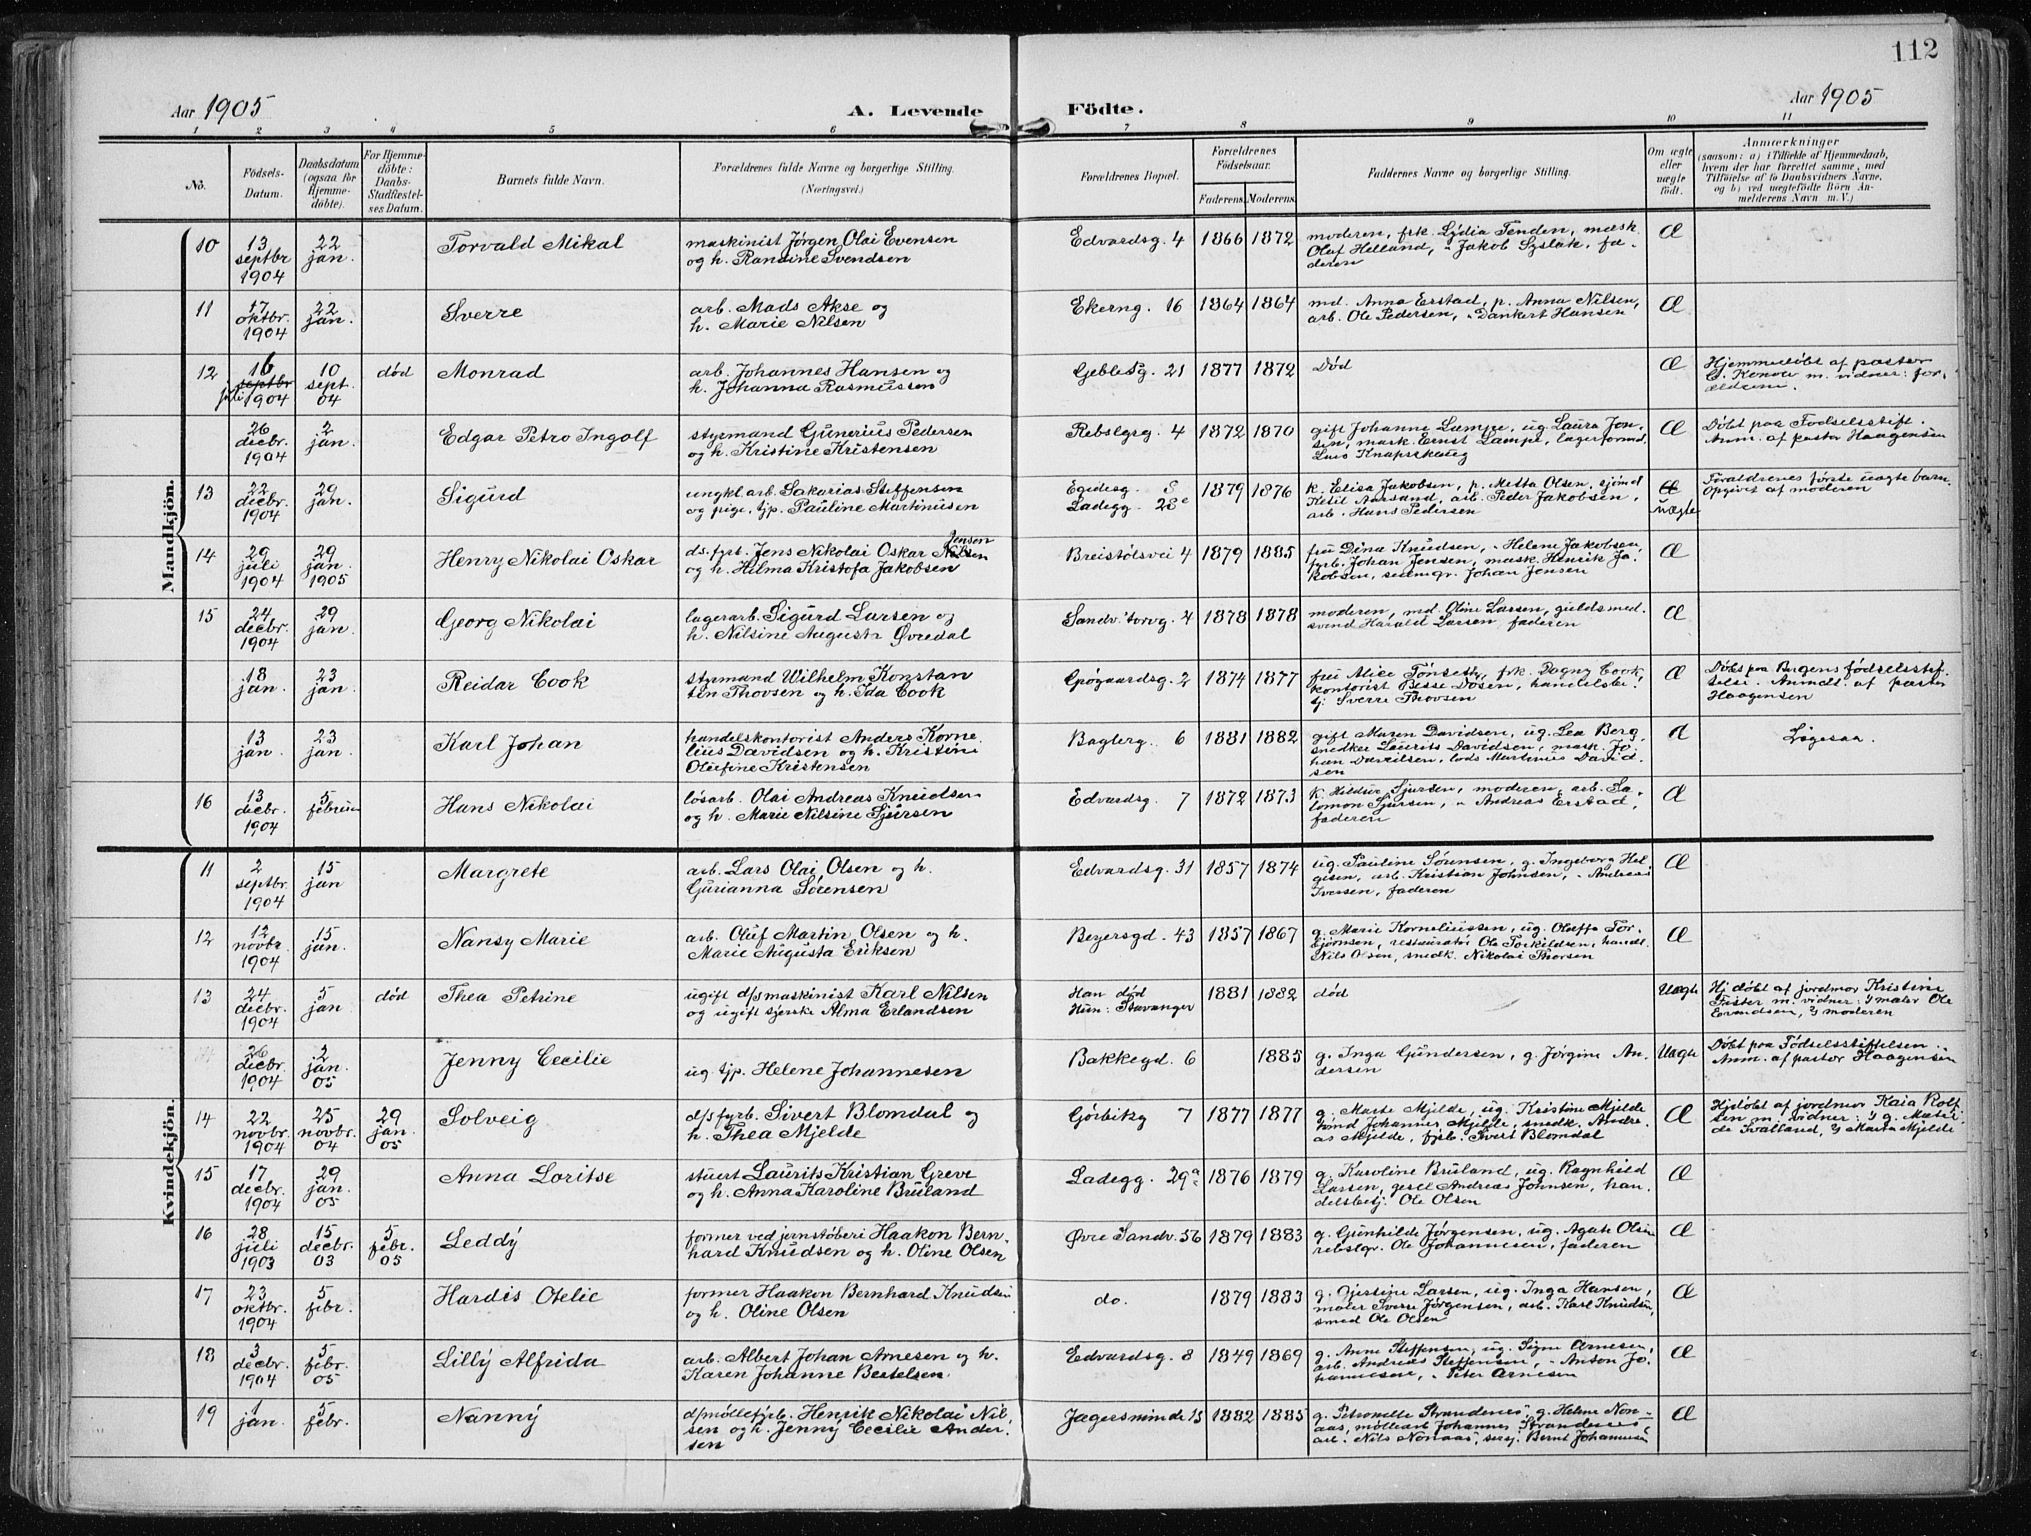 112
Aar 1905
A. Levende Födte.
Aar 1905
1 2 3 4 5 6 7 8 9 10 11
No.
Födsels-Datum.
Daabsdatum (ogsaa for Hjemme-döbte).
For Hjemme-döbte: Daabs-Stadfæstel-ses Datum.
Barnets fulde Navn.
Forældrenes fulde Navne og borgerlige Stilling.
(Næringsvei.)
Forældrenes Bopæl.
Forældrenes Födselsaar.
Faderens. Moderens.
Faddernes Navne og borgerlige Stilling.
Om ægte eller uægte födt.
Anmærkninger
(saasom: a) i Tilfælde af Hjemmedaab, hvem der har forrettet samme, med Tilföielse af to Daabsvidners Navne, og b) ved uægtefödte Börn An-melderens Navn m. V.)
Mandkjön.
10 13 septbr 1904 22 jan. Torvald Mikal
maskinist Jørgen Olai Evensen
og h. Randine Svendsen
Edvardsg. 4 1866 1872
moderen, frk. Lydia Tenden, mask.
Olaf Helland, " Jakob Syslak, fa-
deren
Æ
11 17 oktbr. 1904 22 jan. Sverre
arb. Mads Akse og
h. Marie Nilsen
Ekerng. 16 1864 1864
md. Anna Erstad, p. Anna Nilsen,
arb. Ole Pedersen, " Dankert Hansen
Æ
12 16 septbr juli 1904 10 sept. 04 død Monrad
arb. Johannes Hansen og
h. Johanna Rasmussen
Geblesg. 21 1877 1872
Død
Æ
Hjemmedøbt af pastor
m. vidner: for-
ældrene.
26 decbr. 1904 2 jan. Edgar Petro Ingolf
styrmand Gunerius Pedersen
og h. Kristine Kristensen
Rebslgrg. 4 1872 1870
gift Johanne Lampe, ug. Laura Jon-
sen, mask. Ernst Lampe, lagerformd.
Lars Knapskaug
Æ
Døbt paa Fødselsstift.
Anm. af pastor Haagensen
13 22 decbr. 1904 29 jan. Sigurd
ungkl. arb. Sakarias Steffensen
og pige, tjp. Pauline Martinusen
Egidesg. 8
Ladegg. 28e
1879 1876
k. Elisa Jakobsen, p. Metta Olsen, sjømd
Ketil Aarsand, arb. Peder Jakobsen,
arb. Hans Pedersen
Æ uægte
Forældrenes første uægte barn.
Opgivet af moderen
14 29 juli 1904 29 jan. 1905 Henry Nikolai Oskar
Jensen
ds. fyrb. Jens Nikolai Oskar Nilsen
og h. Hilma Kristofa Jakobsen
Breistølsvei 4 1879 1885
fru Dina Knudsen, " Helene Jakobsen
fyrb. Johan Jensen, mask. Henrik Ja-
kobsen, Johan Jensen
Æ
15 24 decbr. 1904 29 jan. Georg Nikolai
lagerarb. Sigurd Larsen og
h. Nilsine Augusta Øvredal
Sandv. torvg. 4 1878 1878
moderen, md. Oline Larsen, guldsmed-
svend Harald Larsen, faderen
Æ
18 jan. 23 jan. Reidar Cook
styrmand Wilhelm Konstan
tin Thovsen og h. Ida Cook
2 1874 1877
fru Alice Tönseth, frk. Dagny Cook,
kontorist Døsen, handelsbe-
tj. Sverre Thovsen
Æ
Døbt paa Bergens fødselsstif-
telse. Anmdt. af pastor
Haagensen
13 jan. 23 jan. Karl Johan
handelskontorist Anders Korne
lius Davidsen og h. Kristine
Olufine Kristensen
Baglerg. 6 1881 1882
gift Maren Davidsen, ug. Lea Berg,
snedker Laurits Davidsen, mask. Jo-
han Davidsen, lods Martinus David-
sen
Æ
Ligesaa.
16 13 decbr. 1904 5 februar Hans Nikolai
løsarb. Olai Andreas Knudsen
og h. Marie Nilsine Sjursen
Edvardsg. 7 1872 1873
k. Hildur Sjursen, moderen, arb. Sa-
lomon Sjursen, " Andreas Erstad,
faderen
Æ
Kvindekjön.
11 2 septbr. 1904 15 jan Margrete
arb. Lars Olai Olsen og h.
Gurianna Sørensen
Edvardsg. 31 1857 1874
ug. Pauline Sørensen, g. Ingeborg Hel-
gesen, arb. Kristian Johnsen, " Andreas
Iversen, faderen
Æ
12 12 novbr. 1904 15 jan. Nansy Marie
arb. Oluf Martin Olsen og h.
Marie Augusta Eriksen
Beyersgd. 43 1857 1867
g. Marie Korneliussen, ug. Oleffa Tor-
bjørnsen, restauratør Ole Torkildsen, handl.
Nils Olsen, snedk. Nikolai Thorsen
Æ
13 24 decbr. 1904 5 jan død Thea Petrine
ugift d/s maskinist Karl Nilsen
og ugift syerske Alma Erlandsen
Han død
Hun: Stavanger
1881 1882
død
Uægte
Hj. døbt af jordmor Kristine
m. vidner: 1) maler Ole
2) moderen
26 decbr. 1904 2 jan. 05 Jenny Cecilie
ug. tjp. Helene Johannesen
Bakkegd. 6 1885
g. Inga Gundersen, g. Jørgine An-
dersen
Uægte
Døbt paa Fødselsstiftelsen.
Anm. af pastor Haagensen
14 22 novbr. 1904 25 novbr. 04 29 jan. 05 Solveig
d/s fyrb. Sivert Blomdal og
h. Thea Mjelde
7 1877 1877
g. Marte Mjelde, ug. Kristine Mjelde
Johannes Mjelde, snedk. Andre-
as Mjelde, fyrb. Sivert Blomdal
Æ
Hjdøbt af jordmor Kaia Rolf
sen m. vidner: 1) g.
2) Marta Mjelde
15 17 decbr. 1904 29 jan. 05 Anna Loritse
stuert Laurits Kristian Greve
og h. Anna Karoline Bruland
Ladegg. 29a 1876 1879
g. Karoline Bruland, ug. Ragnhild
Larsen, gesel Andreas Johnsen, han-
delsbetj. Ole Olsen
Æ
16 28 juli 1903 15 decbr. 03 5 febr. 05 Leddy
former ved jernstøberi Haakon Bern-
hard Knudsen og h. Oline Olsen
Øvre Sandv. 56 1879 1883
g. Gunhilde Jørgensen, ug. Agate Olsen
rebslgr. Ole Johannesen, faderen
Æ
17 23 oktbr. 1904 5 febr. Hardis Otelie
former Haakon Bernhard Knudsen
og h. Oline Olsen
do. 1879 1883
g. Gjertine Larsen, ug. Inga Hansen,
maler Sverre Jørgensen, arb. Karl Knudsen,
smed Ole Olsen
Æ
18 3 decbr. 1904 5 febr. 05 Lilly Alfrida
arb. Albert Johan Arnesen og h.
Karen Johanne Bertelsen.
Edvardsg. 8 1849 1869
g. Anne Steffensen, ug. Signe Arnesen,
arb. Andreas Steffensen, " Anton Jo-
hannesen, " Peter Arnesen
Æ
19 1 jan. 5 febr. Nanny
d/smøllefyrb. Henrik Nikolai Nil-
sen og h. Jenny Cecilie Ander-
sen
Jægersminde 15 1882 1885
g. Petronelle Strandenes, g. Helene Non-
aas, møllearb Johannes Strandenes
arb. Nils Nonaas, Bernt Johannesen
Æ